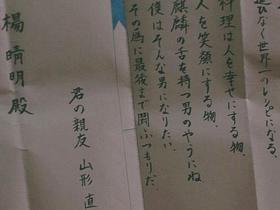 遊びなく世界一のレシピになる
料理は人を幸せにする物.
人を笑顔にする物.
麒麟の舌を持つ男のやうにね
僕はそんな男になりたい.
その為に最後まで闘ふつもりだ.
君の親友 山形 直
楊 晴明 殿